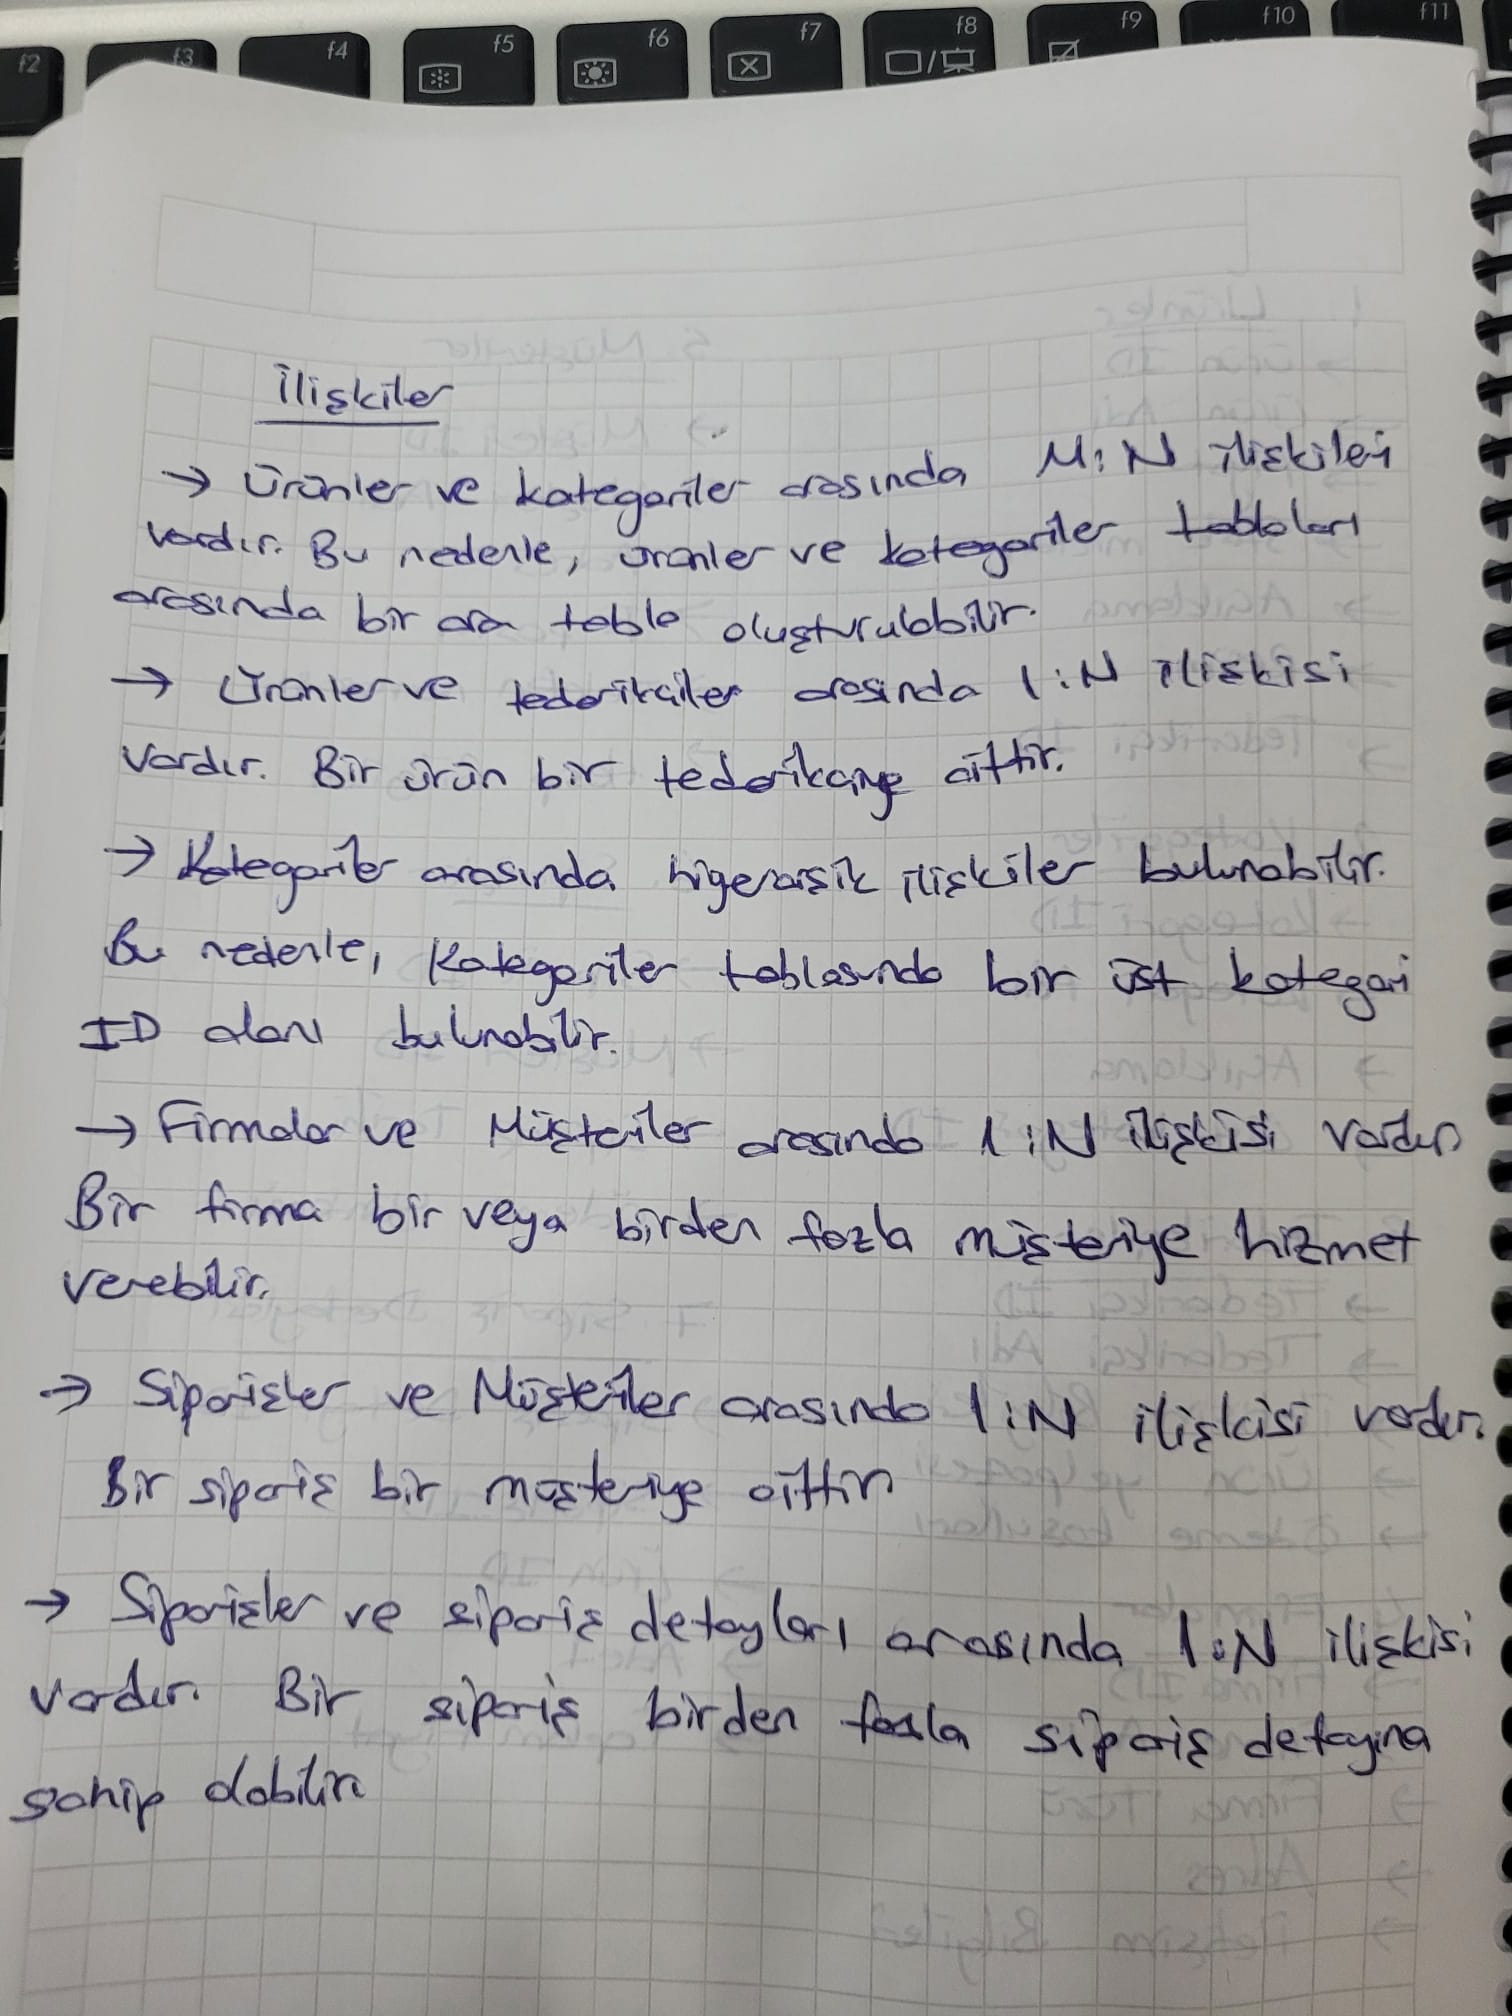 f2 f3 f4 f5 f6 f7 f8 f9 f10 f11
İlişkiler
→ Ürünler ve kategoriler arasında M:N ilişkileri
vardır. Bu nedenle, ürünler ve kategoriler tabloları
arasında bir ara tablo oluşturulabilir.
→ Ürünler ve tedarikçiler arasında 1:N ilişkisi
vardır. Bir ürün bir tedarikçiye aittir.
→ Kategoriler arasında hiyerarşik ilişkiler bulunabilir.
Bu nedenle, Kategoriler tablosunda bir üst kategori
ID alanı bulunabilir.
→ Firmalar ve Müşteriler arasında 1:N ilişkisi vardır.
Bir firma bir veya birden fazla müşteriye hizmet
verebilir.
→ Siparişler ve Müşteriler arasında 1:N ilişkisi vardır.
Bir sipariş bir müşteriye aittir
→ Siparişler ve sipariş detayları arasında 1:N ilişkisi
vardır. Bir sipariş birden fazla sipariş detayına
sahip olabilir.